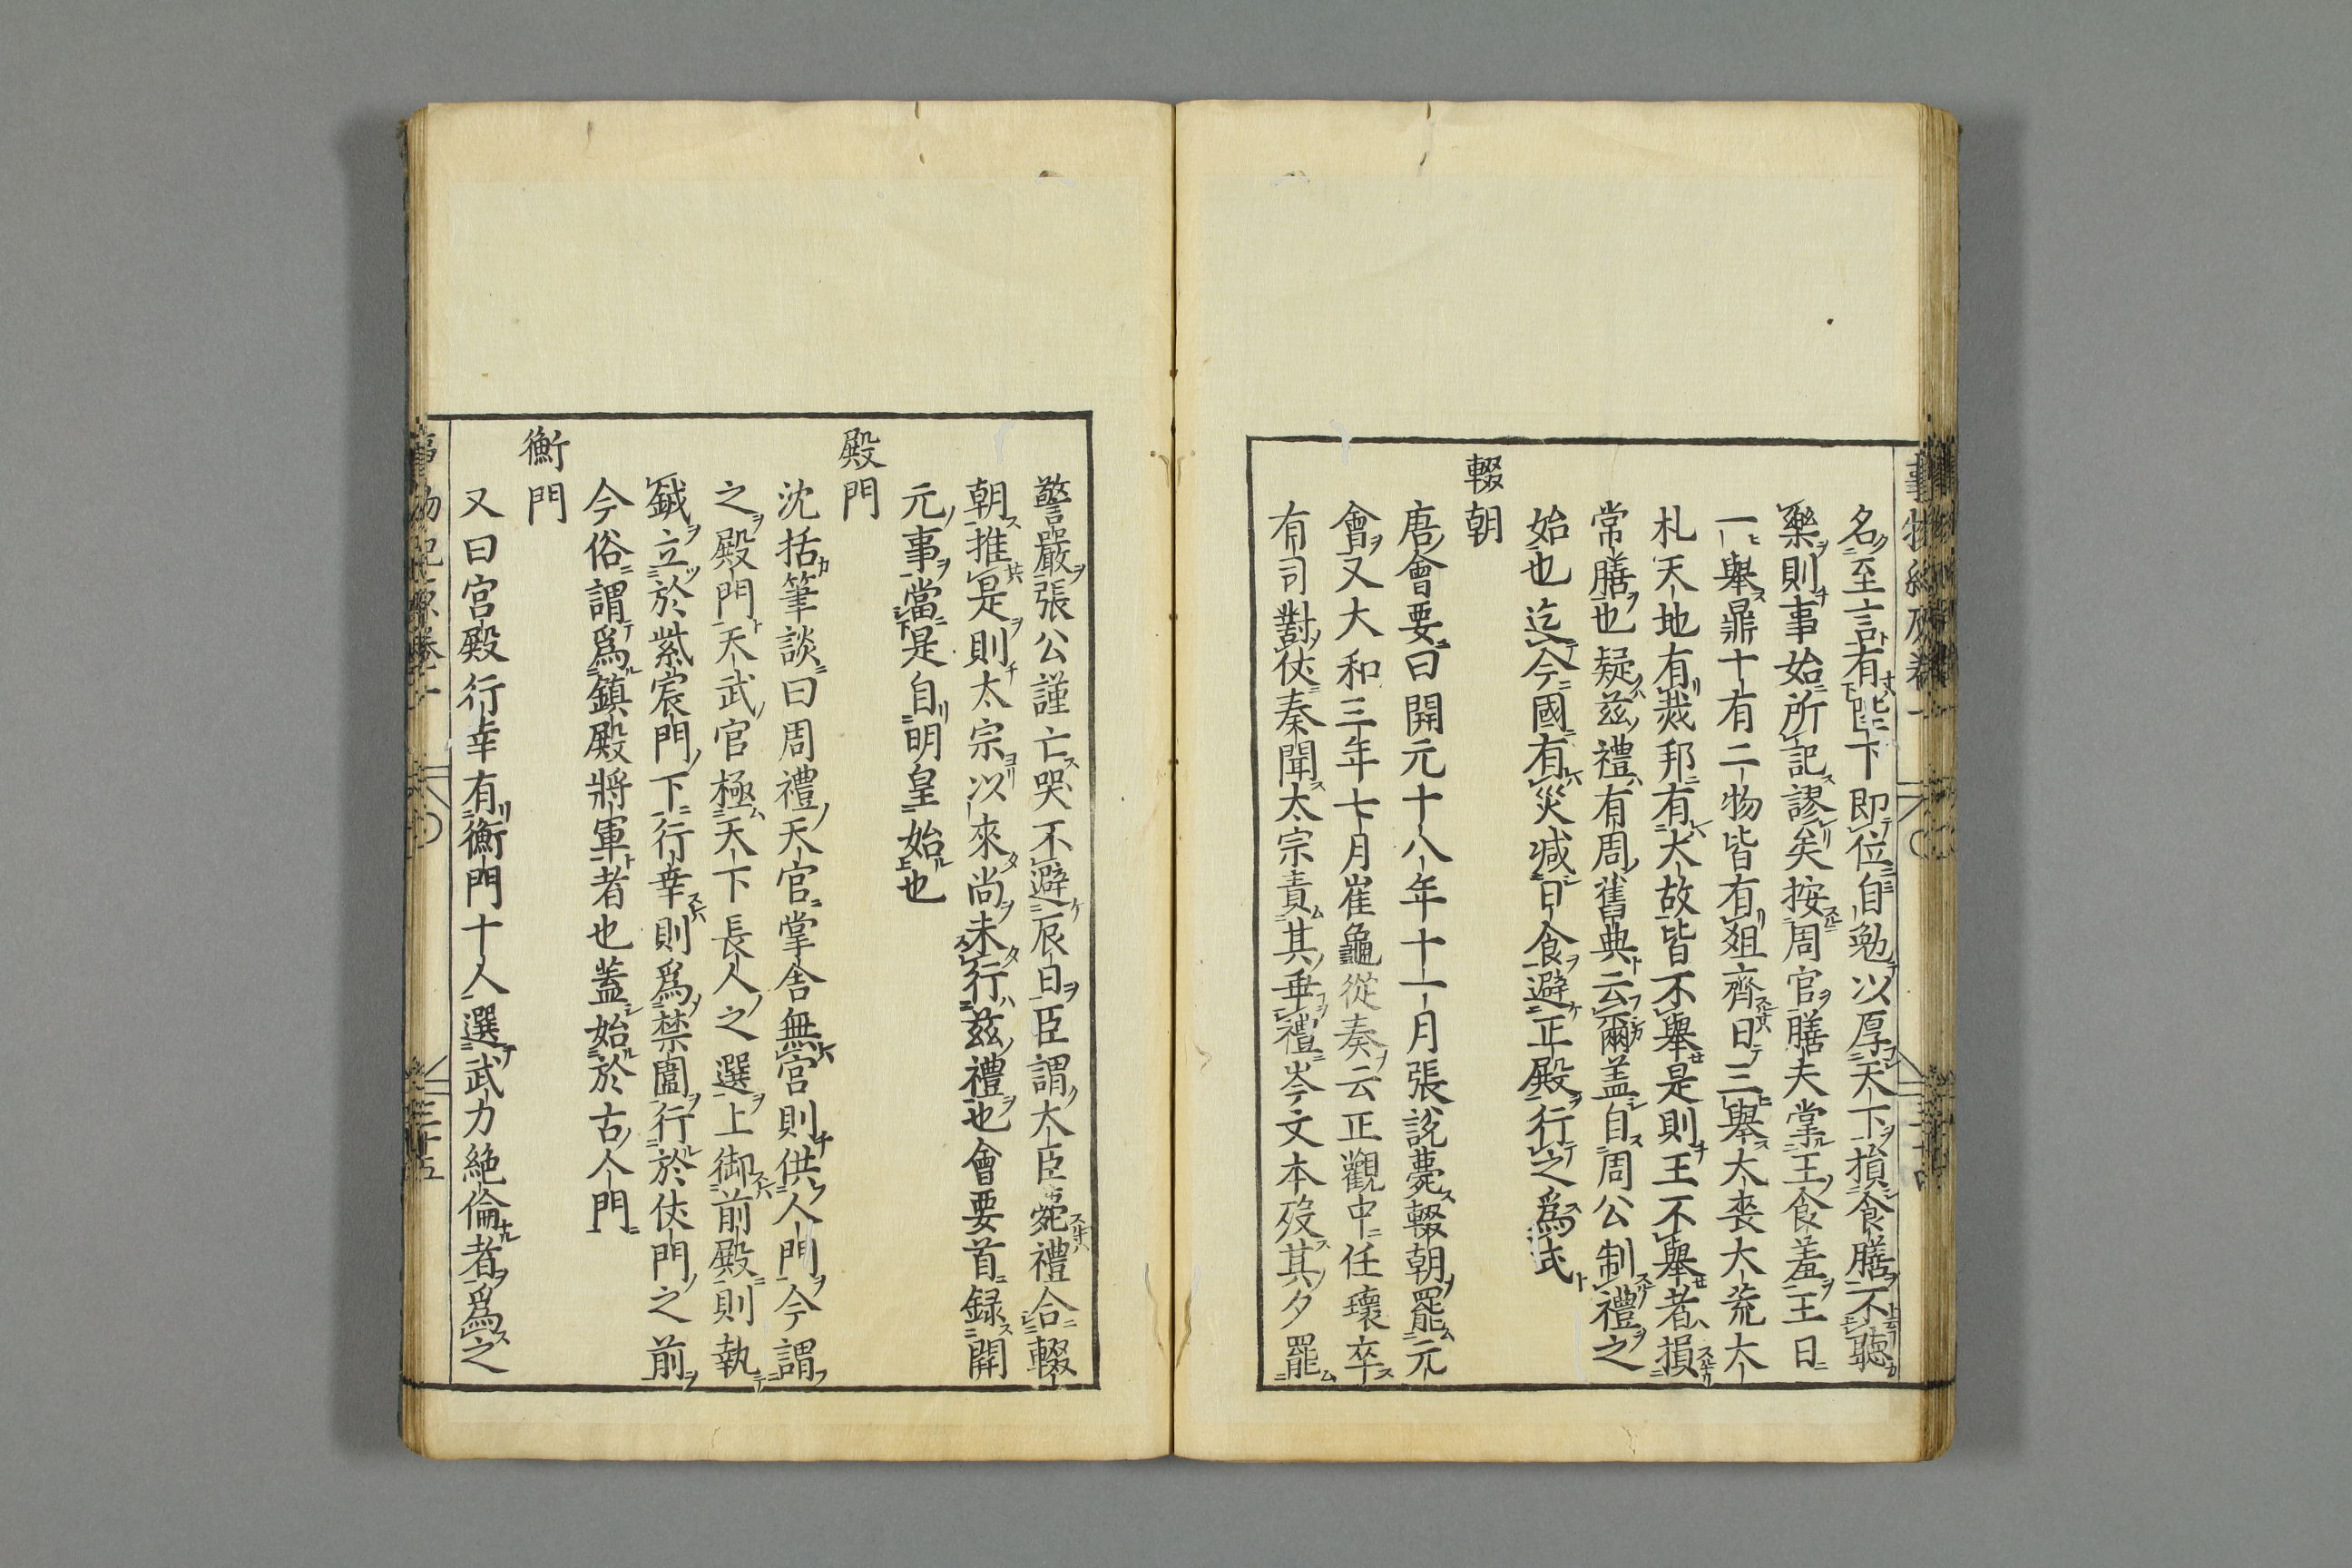 名至言有陛下即位自勉以厚天下損食膳不聽
樂則事始所記謬矣按周官膳夫掌王食羞王日
一舉鼎十有二物皆有爼齊日三舉大喪大荒大
札天地有烖邦有大故皆不舉是則王不舉者損
常膳也疑茲禮有周舊典云爾盖自周公制禮之
始也迄今國有災减日食避正殿行之爲式
輟朝
唐會要曰開元十八年十一月張説薨輟朝罷元
會又大和三年七月崔龜從奏云正觀中任瓌卒
有司對仗奏聞太宗責其乖禮岑文本歿其夕罷
警嚴張公謹亡哭不避辰日臣謂大臣薨禮合輟
朝推是則太宗以來尚未行茲禮也會要首録開
元事當是自明皇始也
殿門
沈括筆談曰周禮天官掌舍無宮則供人門今謂
之殿門天武官極天下長人之選上御前殿則執
鉞立於紫宸門下行幸則爲禁圍行於仗門之前
今俗謂爲鎮殿將軍者也蓋始於古人門
衡門
又曰宮殿行幸有衡門十人選武力絶倫者爲之
事物紀原卷一
三十五